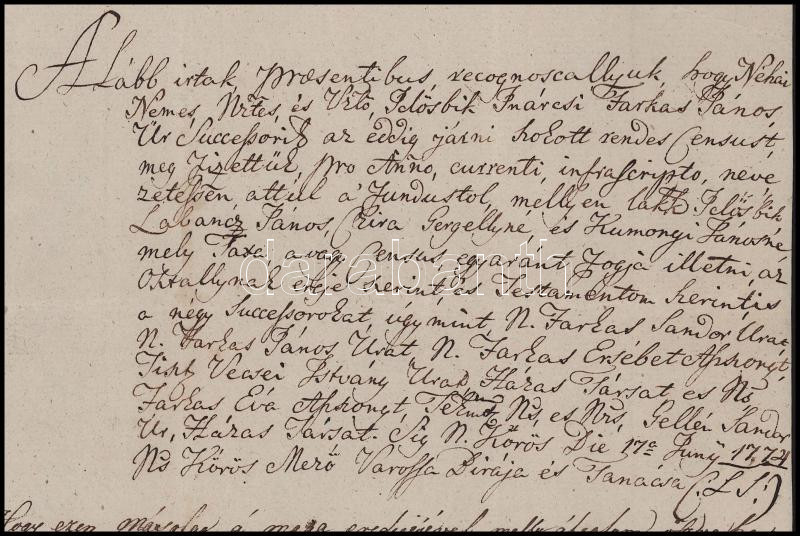 Alább irtak, præsentibus, recognoscallyuk, hogy Néhai
Nemes, Vrtes, és Vzló Idősbik Inárcsi Farkas János
Úr Successorik az eddig járni szokott rendes Censust,
meg fizettük pro Anno, currenti, infrascripto, neve
zetessen, attúl a' Fundustol, mellyen lakk Idősbik
Labancz János, Czira Gergellyné és Kumonyi Jánosné
mely Taxa, avagy Census egyaránt fogja illetni, az
Osztallynak ereje szerint, és Testamentom szerint is
a négy Successorokat, ugymint, N. Farkas Sandor Urat,
N. Farkas János, Urat, N. Farkas Ersébet Aszszonyt,
Tiszt. Vecsei István Urak Házas Társat, es Ns
Farkas Eva Aszszonyt, Ns, es Vrs, Gellén Sandor
Ur, Házas Társát. Sig. N. Kőrös Die 17a Junÿ 1774
Ns Kőrös Mező Varossa Birája és Tanácsa (:L S:)
Hogy ezen a maga
darabanth